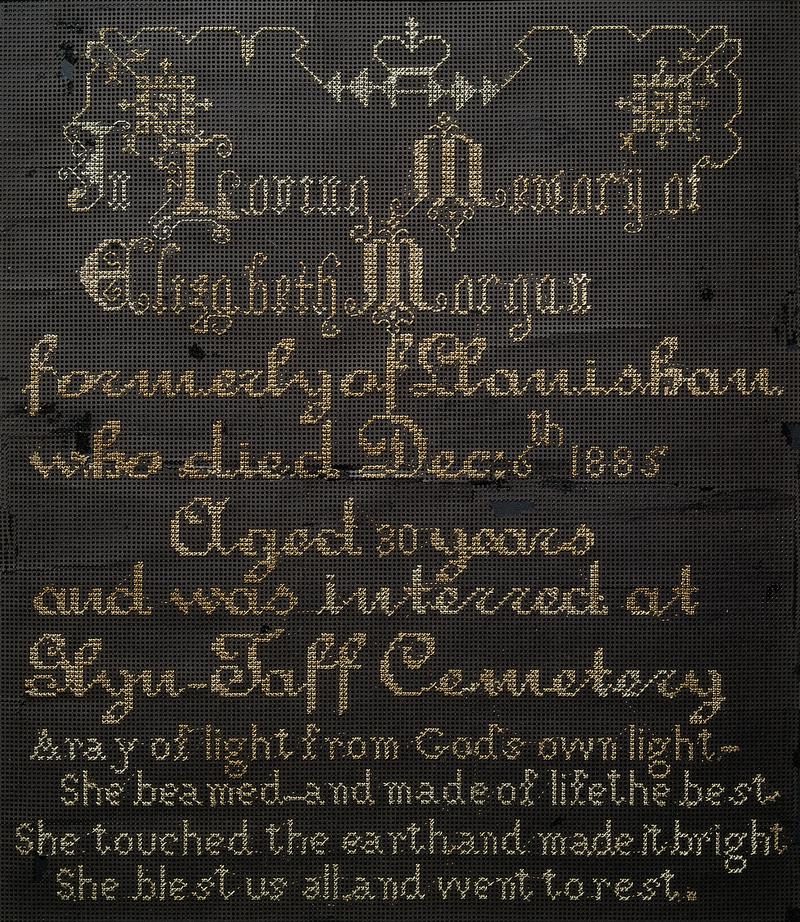 In Loving Memory of
Elizabeth Morgan
formerly of Llanishan,
who died Dec: 6th 1885
Aged 30 years
and was interred at
Glyn-Taff Cemetery
A ray of light from God's own light-
She beamed-and made of life the best.
She touched the earth and made it bright
She blest us all and went to rest.